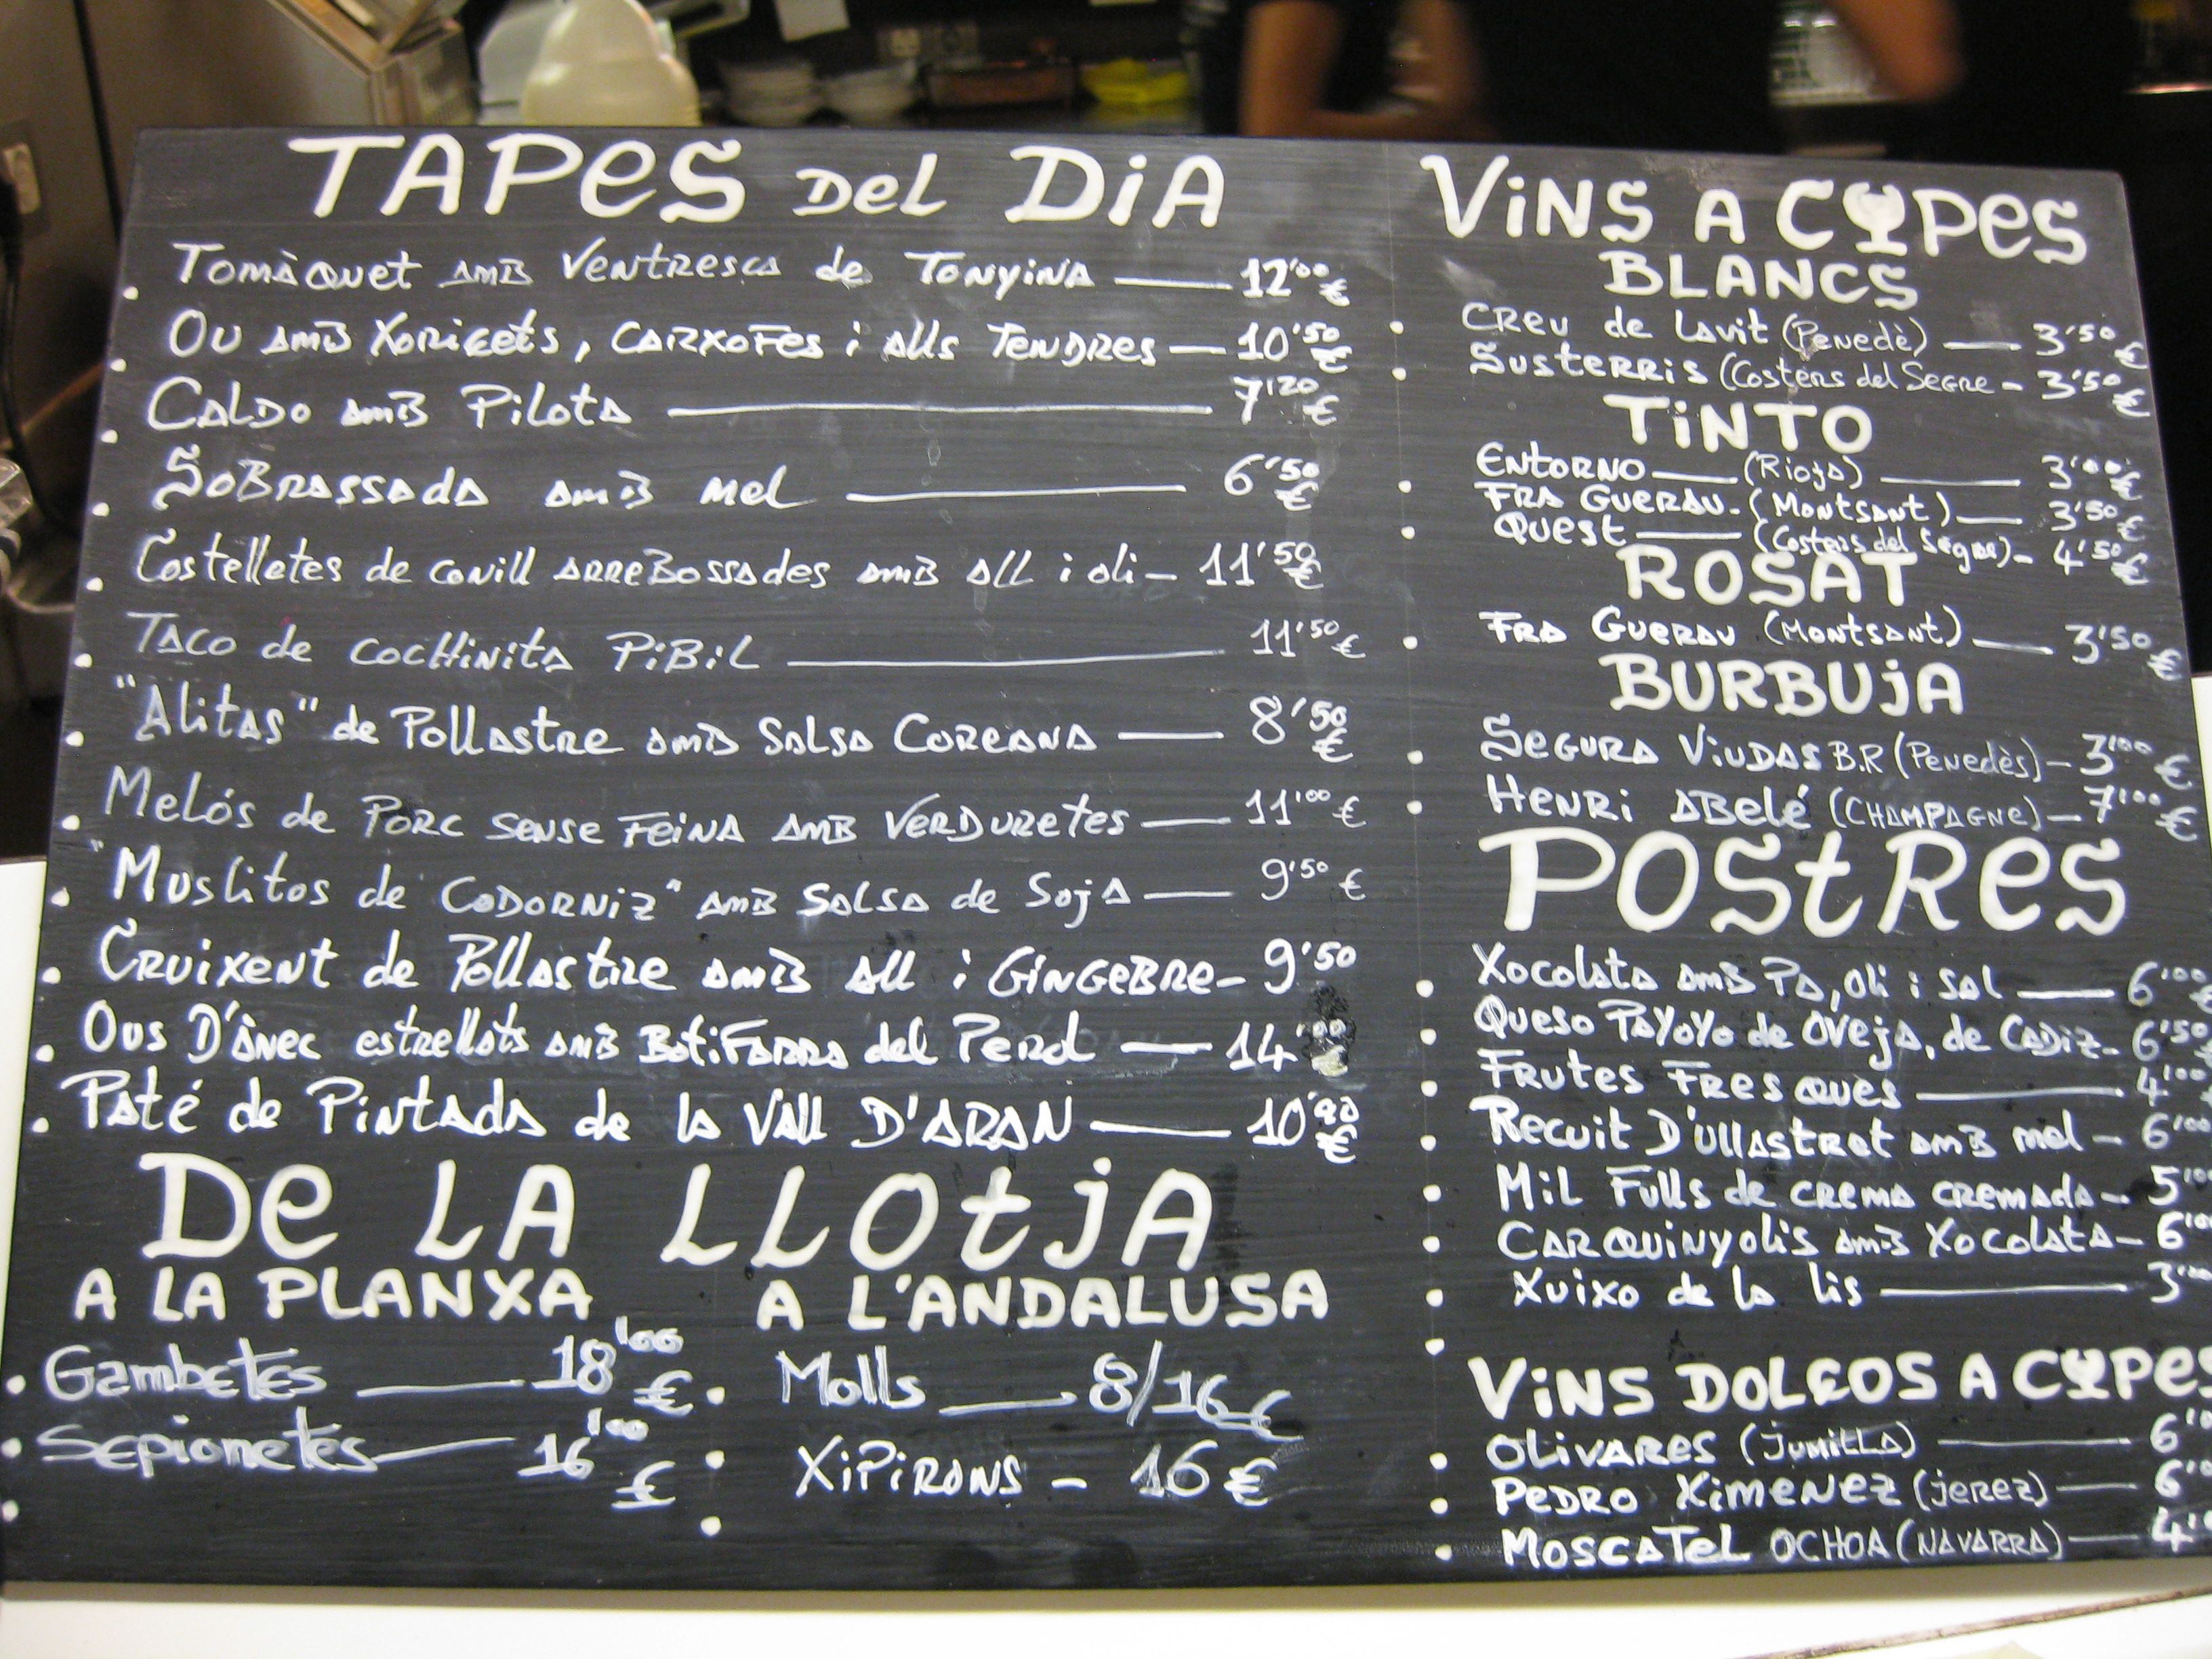 TAPES DEL DIA
Tomàquet amb Ventresca de Tonyina — 12'00 €
Ou amb Xoricets, Carxofes i alls Tendres — 10'50 €
Caldo amb Pilota — 7'20 €
Sobrassada amb mel — 6'50 €
Costelletes de conill arrebossades amb all i oli — 11'50 €
Taco de Cochinita Pibil — 11'50 €
"Alitas" de Pollastre amb Salsa Coreana — 8'50 €
Melós de Porc sense Feina amb Verduretes — 11'00 €
"Muslitos de Codorniz" amb Salsa de Soja — 9'50 €
Cruixent de Pollastre amb all i Gingebre — 9'50
Ous D'ànec estrellats amb Botifarra del Perol — 14'00
Paté de Pintada de la Vall D'ARAN — 10'90 €
De LA LLOtjA
A LA PLANXA
Gambetes — 18'00 €
Sepionetes — 16'00 €
A L'ANDALUSA
Molls — 8/16 €
XIPIRONS — 16 €
ViNS A COPES
BLANCS
Creu de Lavit (Penedè) — 3'50 €
Susterris (Costers del Segre — 3'50 €
TiNTO
Entorno — (Rioja) — 3'00 €
Fra Guerau — (Montsant) — 3'50 €
Quest — (Costers del Segre) — 4'50 €
ROSAT
Fra Guerau (Montsant) — 3'50 €
BURBUjA
Segura Viudas B.R (Penedès) — 3'00 €
Henri Abelé (CHAMPAGNe) — 7'00 €
POStRes
Xocolata amb Pa, Oli i Sal — 6'00
Queso Payoyo de Oveja, de Cadiz — 6'50
Frutes Fresques — 4'00
Recuit D'ullastret amb mel — 6'00
Mil Fulls de crema cremada — 5'00
Carquinyolis amb Xocolata — 6'0
Xuixo de la lis — 3'
ViNS DOLÇOS A COPES
Olivares (jumilla) — 6'
Pedro Ximenez (jerez) — 6'
Moscatel OCHOA (NAVARRA) — 4'